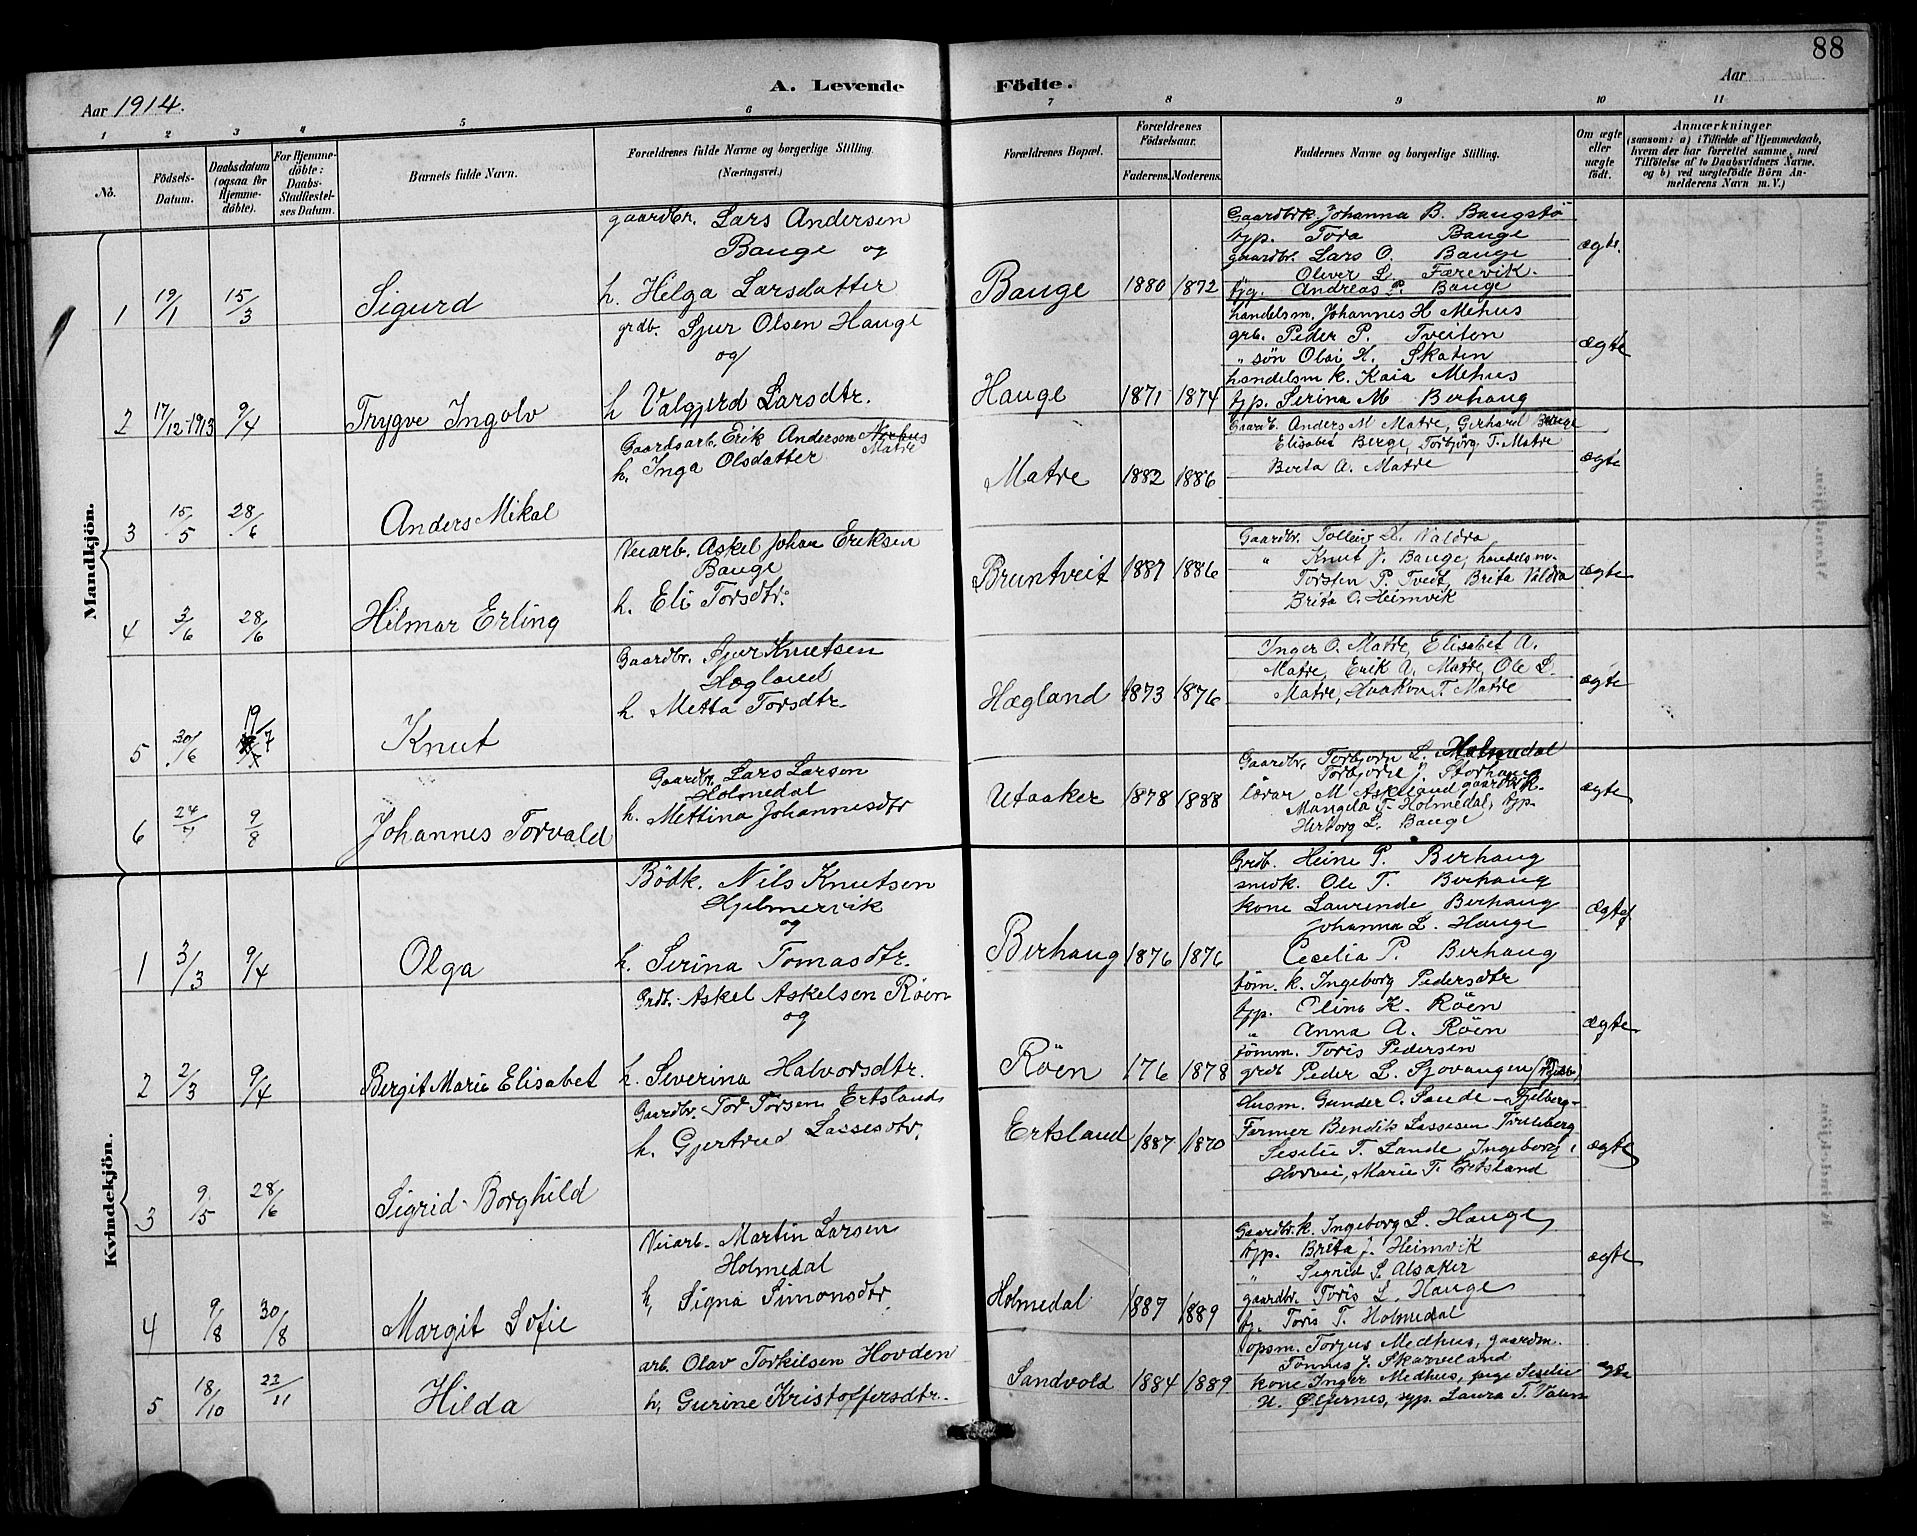 88
A. Levende Födte.
Aar 1914.
Aar
1 2 3 4 5 6 7 8 9 10 11
No.
Födsels-Datum.
Daabsdatum (ogsaa for Hjemme-döbte).
For Hjemme-döbte: Daabs-Stadfæstel-ses Datum.
Barnets fulde Navn.
Forældrenes fulde Navne og borgerlige Stilling. (Næringsvei.)
Forældrenes Bopæl.
Forældrenes Födselsaar.
Faderens. Moderens.
Faddernes Navne og borgerlige Stilling.
Om ægte eller uægte födt.
Anmærkninger
(saasom: a) i Tilfælde af Hjemmedaab,
hvem der har forrettet samme, med
Tilföielse af to Daabsvidners Navne.
og b) ved uægtefödte Börn An-
melderens Navn m. V.)
Mandkjön.
1 19/1 15/3 Sigurd
gaardbr. Lars Andersen
Bauge og
h. Helga Larsdatter
Bauge 1880 1872
Gaardbrk. Johanna B. Baugstø
tjp. Tora Bauge
gaardbr. Lars O. Bauge
" Oliver L. Færevik.
tjg. Andreas P. Bauge
ægte.
2 17/12-1913 9/4 Trygve Ingolv
grdb. Sjur Olsen Hauge
og
h Valgjerd Larsdtr.
Hauge 1871 1874
handelsm. Johannes H Mehus
grb. Peder P. Tveiton
" søn Olai H. Skaten
handelsm k. Kaia Mehus
tjp. Serina M Berhaug
ægte
3 15/5 28/6 Anders Mikal
Gaardsarb. Erik Andersen
Matre
h. Inga Olsdatter
Matre 1882 1886
Gaardb. Anders M Matre, Gerhard Berge
Elisabet Berge, Torbjørg T. Matre
Berta A. Matre
ægte
4 3/6 28/6 Hilmar Erling
Veiarb. Askel Johan Eriksen
Bauge
h. Eli Torsdtr.
Bruntveit 1887 1886
Gaardbr. Tolleiv L. Valdra
" Knut J. Bauge, handelsm.
Torsten P. Tveit, Brita Valdra
Brita O. Heimvik
ægte
5 30/6 19/7 Knut
Gaardbr. Sjur Knutsen
Hægland
h. Metta Torsdtr.
Hægland 1873 1876
Inger O. Matre, Elisabet A.
Matre, Erik A. Matre, Ole L.
Matre, Haakon T. Matre
ægte
6 24/7 9/8 Johannes Torvald
Gaardbr. Lars Larsen
Holmedal
h. Mettina Johannesdtr
Utaaker 1878 1888
Gaardbr, Torbjorn L. Holmedal
Torbjorn J. Storhaug
lærar M. Askeland, gaardbrk.
Mangela T. Holmedal, tjp.
Herborg L. Bauge
ægte
Kvindekjön.
1 3/3 9/4 Olga
Bödk. Nils Knutsen
Hjelmervik
og
h. Serina Tomasdtr.
Berhaug 1876 1876
Grdb. Heine P. Berhaug
smedk. Ole T. Berhaug
kone Laurende Berhaug
Johanna L. Hauge
Cecilia P. Berhaug
ægte
2 2/3 9/4 Bergit Marie Elisabet
Grdb. Askel Askelsen Röen
og
h. Severina Halvorsdtr.
Röen 176 1878
töm. k. Ingeborg Pedersdtr
tjp. Elina K. Röen
" Anna A. Röen
tömm. Toris Pedersen
grdb Peder L. Sjovangen
ægte
3 9/5 28/6 Sigrid Borghild
Gaardbr. Tor Torsen Ertsland
h. Gjertrud Lassesdtr.
Ertsland 1887 1870
Husm. Gunder O. Sande - Fjelberg -
Farmer Bendik Lassesen Truleberg
Seselie T. Lande, Ingeborg
Marie T. Ertsland
ægte
4 9/8 30/8 Margit Sofie
Veiarb. Martin Larsen
Holmedal
h, Signa Simonsdtr,
Holmedal 1887 1889
Gaardbr.k. Ingeborg L. Hauge,
tjp. Brita J. Heimvik
" Sigrid S. Alsaker
gaardbr. Toris L. Hauge
tj. Toris T. Holmedal
ægte
5 18/10 22/11 Hilda
arb. Olav Torkilsen Hovden
h, Gurine Kristoffersdtr.
Sandvold 1884 1889
opsm. Torjus Medhus, gaardm.
Tönnes J. Skarveland
kone Inger Medhus, Seselie
H. Ølfernes, syp. Laura T. Valen
ægte